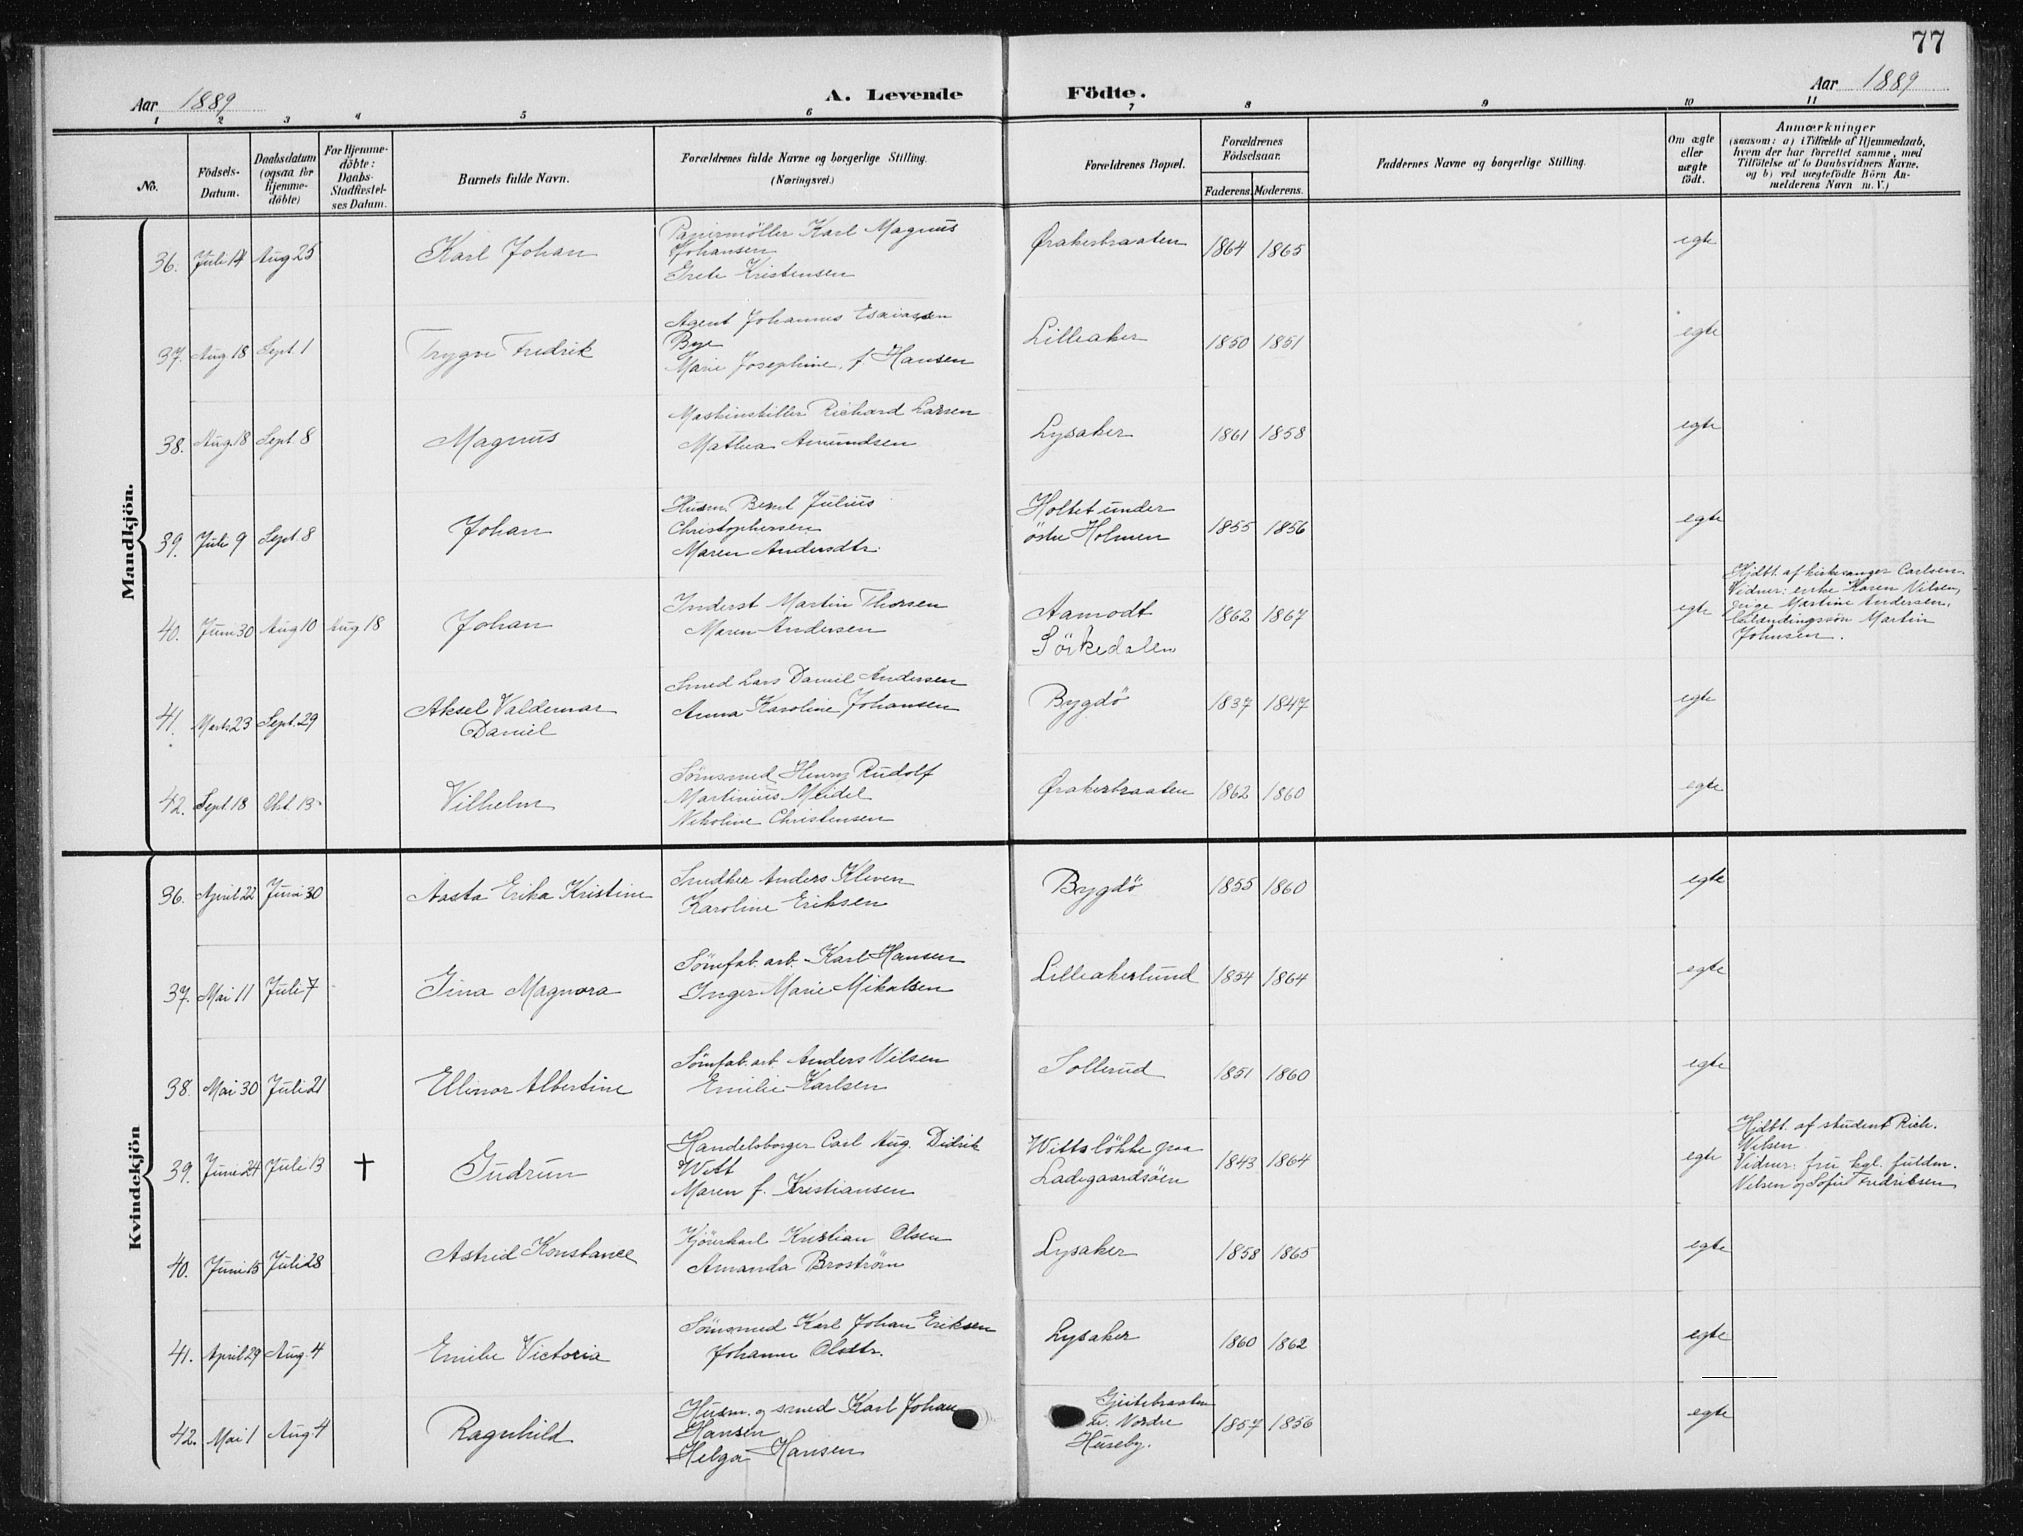 77
Aar 1889
A. Levende Födte.
Aar 1889
1 2 3 4 5 6 7 8 9 10 11
No.
Födsels-Datum.
Daabsdatum (ogsaa for Hjemme-döbte)
For Hjemme-döbte: Daabs-Stadfæstel-ses Datum.
Barnets fulde Navn.
Forældrenes fulde Navne og borgerlige Stilling.
(Næringsvei.)
Forældrenes Bopæl.
Forældrenes Födselsaar.
Faderens. Moderens.
Faddernes Navne og borgerlige Stilling.
Om ægte eller uægte födt.
Anmærkninger
(saasom: a) i Tilfælde af Hjemmedaab,
hvem der har forrettet samme, med
Tilföielse af to Daabsvidners Navne.
og b) ved uægtefödte Börn An-
melderens Navn m. V.)
Mandkjön.
36. Juli 14 Aug 25 Karl Johan
Papirmöller Karl Magnus
Johansen
Grete Kristensen
Ørakerbraaten 1864 1865 egte
37. Aug. 18 Sept. 1 Trygve Fredrik
Agent Johannes Esaiassen
Bye
Marie Josephine f. Hansen
Lilleaker 1850 1851 egte
38. Aug. 18 Sept 8 Magnus
Maskinstiller Richard Larsen
Mathea Amundsen
Lysaker 1861 1858 egte
39. Juli 9 Sept. 8 Johan
Husm. Bernt Julius
Christophersen
Maren Andersdtr.
Holtet under
östre Holmen 1855 1856 egte
40. Juni 30 Aug 10 Aug 18 Johan
Inderst Martin Thorsen
Maren Andersen
Aamodt
Sörkedalen 1862 1867 egte
Hjdbt. af kirkesanger Carlsen.
Vidner: enke Karen Nilsen,
pige Martine Andersen,
Johnsen.
41. Marts 23 Sept. 29 Aksel Valdemar
Daniel
Smed Lars Daniel Andersen
Anna Karoline Johansen
Bygdö 1837 1847 egte
42. Sept. 18 Okt. 13 Vilhelm
Sömsmed Henry Rudolf
Martinius Meidel
Nikoline Christensen
Ørakerbraaten 1862 1860 egte
Kvindekjön
36. April 22 Juni 30 Aasta Erika Kristine
Snedker Anders Kleven
Karoline Eriksen
Bygdö 1855 1860 egte
37. Mai 11 Juli 7 Jina Magnora
Sömfab. arb. Karl Hansen
Inger Marie Mikalsen
Lilleakerlund 1854 1864 egte
38. Mai 30 Juli 21 Ellinor Albertine
Sömfab. arb. Anders Nilsen
Emilie Karlsen
Sollerud 1851 1860 egte
39. Juni 24 Juli 13 † Gudrun
Handelsborger Carl Aug. Didrik
Witt
Maren f. Kristiansen
Wittslökke paa
Ladegaardsöen 1843 1864 egte
Hjdbt. af student Rich.
Nilsen
Vidner: fru kgl. fuldm.
Nilsen og Sofie Fredriksen
40. Juni 15 Juli 28 Astrid Konstance
Kjörekarl Kristian Olsen
Amanda Broström
Lysaker 1858 1865 egte
41. April 29 Aug. 4 Emilie Victoria
Sömsmed Karl Johan Eriksen
Johanne Olsdtr.
Lysaker 1860 1862 egte
42. Mai 1 Aug 4 Ragnhild
Husm. og smed Karl Johan
Hansen
Helga Hansen
Gjeitebraaten
u. Nordre
Huseby. 1857 1856 egte